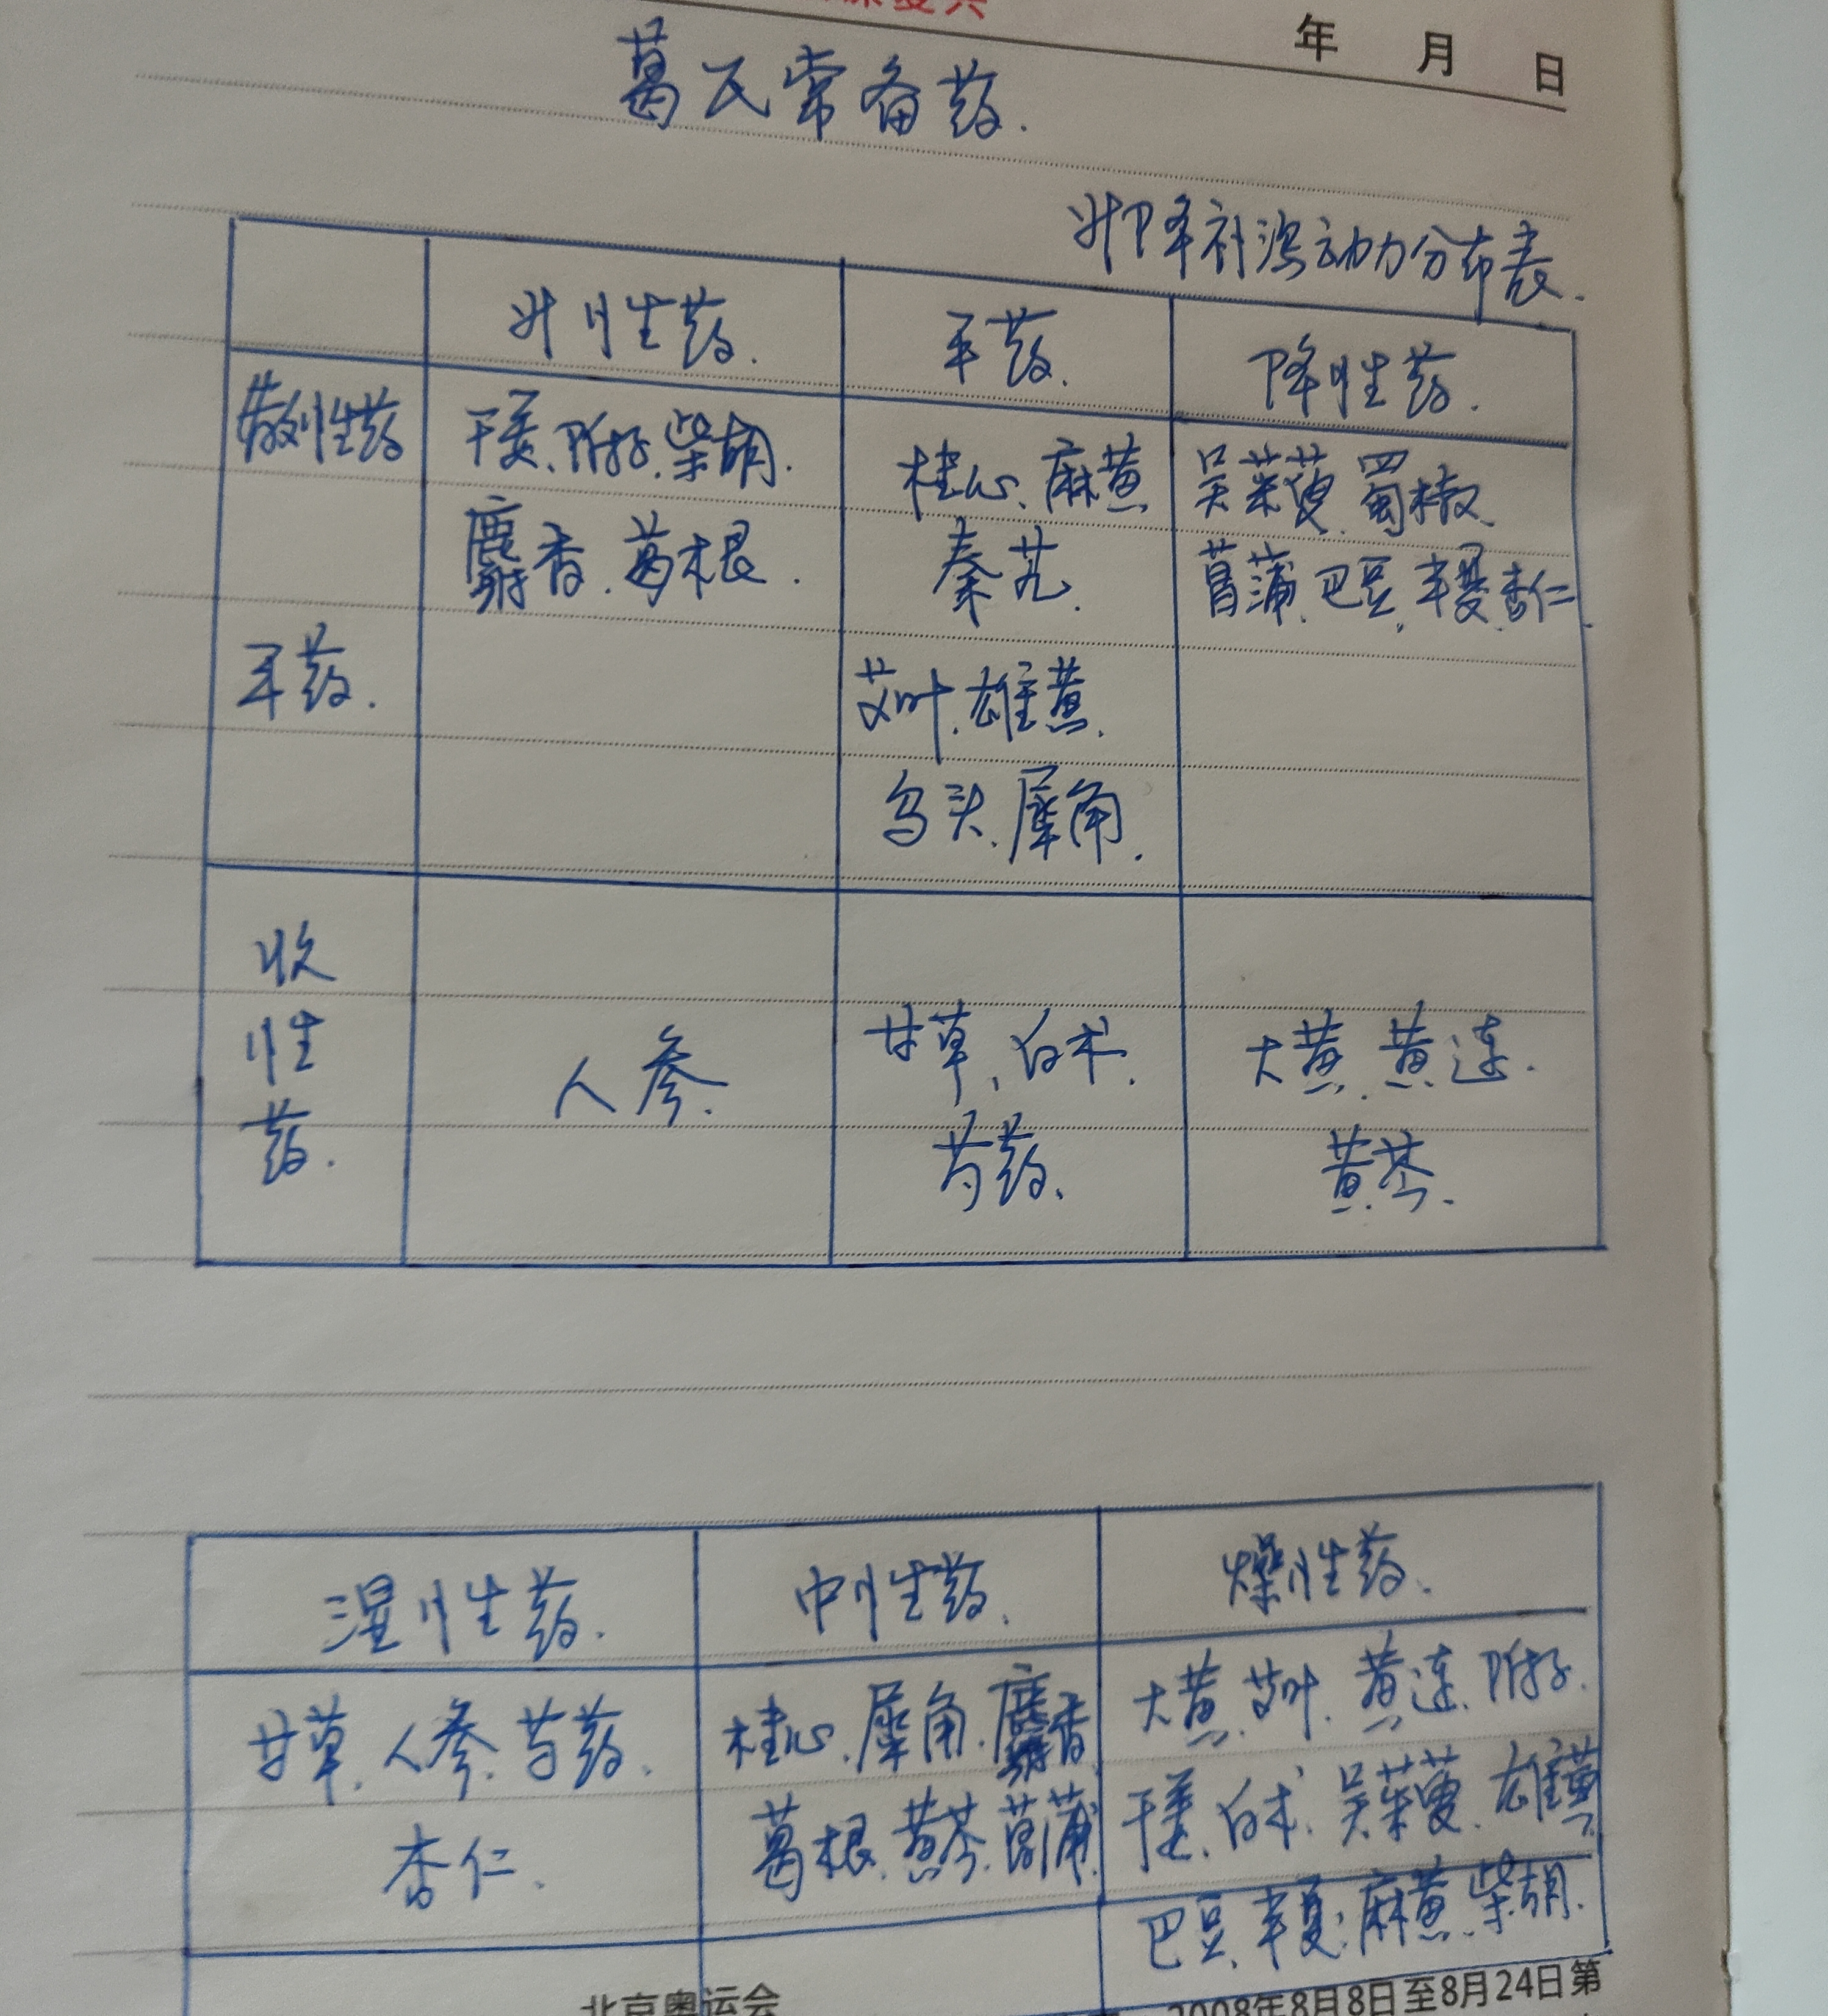 年 月 日
葛氏常备药.
升降补泻动力分布表.
升性药. 平药. 降性药.
散性药 干姜、附子、柴胡. 桂心、麻黄 吴茱萸、蜀椒、
麝香、葛根. 秦艽. 菖蒲、巴豆、半夏、杏仁.
平药. 艾叶、雄黄.
乌头、犀角.
收
性 人参. 甘草、白术. 大黄、黄连.
药. 芍药. 黄芩.
湿性药. 中性药. 燥性药.
甘草、人参、芍药、 桂心、犀角、麝香 大黄、艾叶、黄连、附子.
杏仁. 葛根、黄芩、菖蒲. 干姜、白术、吴茱萸、雄黄
巴豆、半夏、麻黄、柴胡.
北京奥运会 2008年8月8日至8月24日第